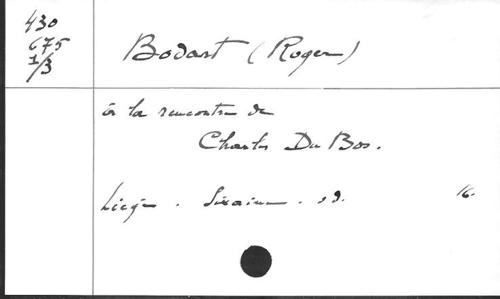 430
675
1/3
Bodart (Roger)
à la rencontre de
Charles Du Bos.
Liège. Dixain. sd. 16.